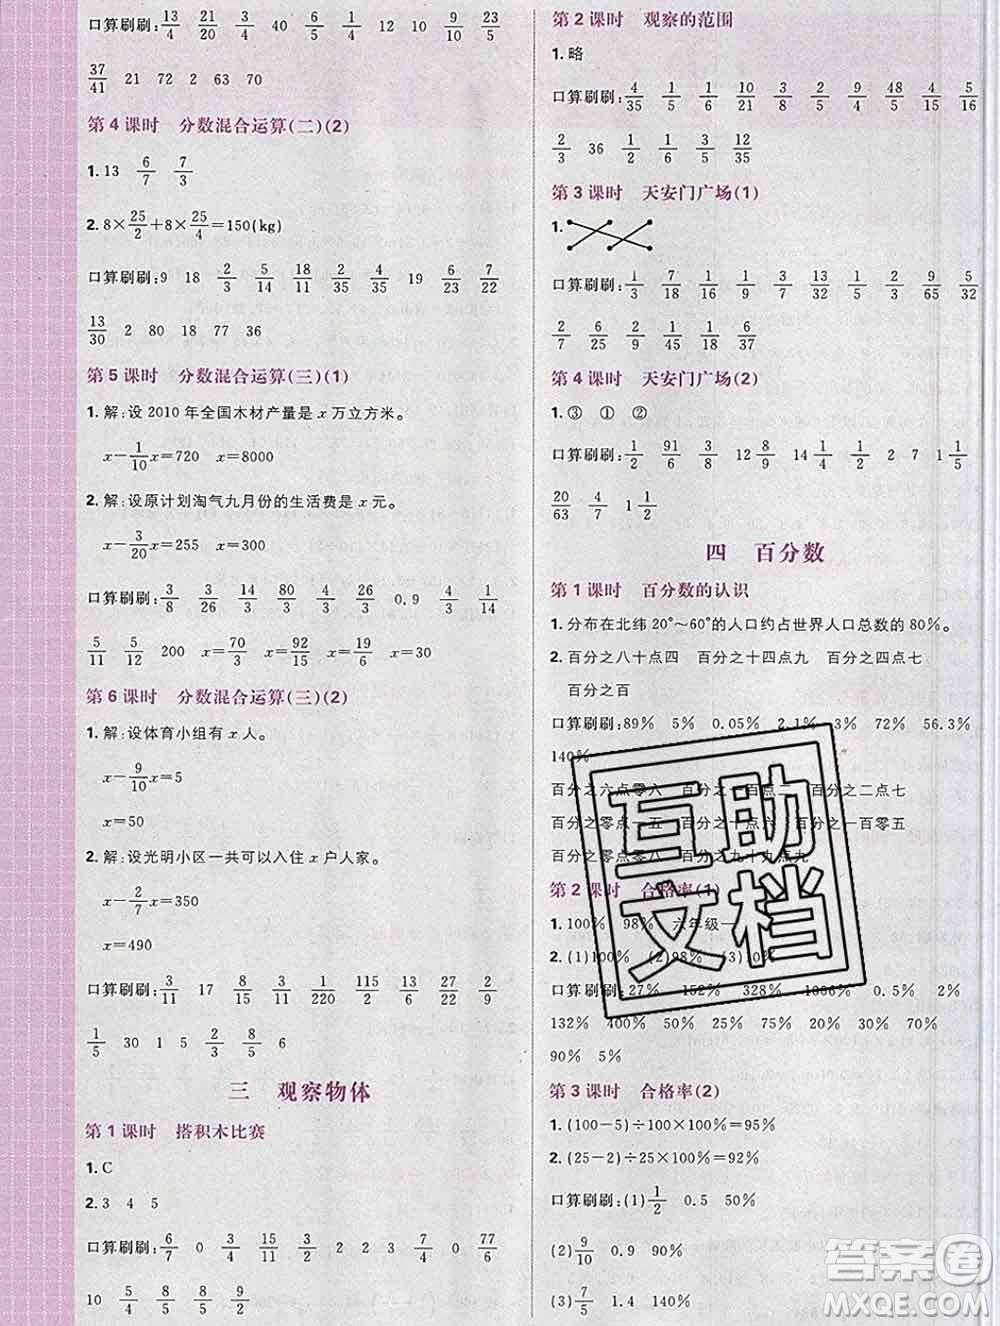 口算刷刷: 13/4 21/20 40 6/5 1/4 12 10 9/4 5/6
37/41 21 72 2 63 70
第 4 课时 分数混合运算(二)(2)
1. 13 6/7 7/3
2. 8×25/2+8×25/4=150(kg)
口算刷刷: 9 18 2/3 5/14 18/11 2/35 4/35 19 6/23 7/22
13/30 2 80 18 77 36
第 5 课时 分数混合运算(三)(1)
1. 解:设 2010 年全国木材产量是 x 万立方米。
x−1/10x=720 x=8000
2. 解:设原计划淘气九月份的生活费是 x 元。
x−3/20x=255 x=300
口算刷刷: 3/8 3/26 14/3 80/9 33/26 3/35 0.9 4/3 1/14
5/11 5/12 200 x=70/3 x=92/15 x=20/3
第 6 课时 分数混合运算(三)(2)
1. 解:设体育小组有 x 人。
x−9/10x=5
x=50
2. 解:设光明小区一共可以入住 x 户人家。
x−2/7x=350
x=490
口算刷刷: 3/11 17 8/15 3/11 1/220 115/2 13/6 6/27 2/9
1/5 30 1 5 2/3 8/5 6
三 观察物体
第 1 课时 搭积木比赛
1. C
2. 3 4 5
口算刷刷: 6/7 0 3/4 15/11 3/2 2 2 3 7/4 0 77/6
10 5/4 8/5 9/2
第 2 课时 观察的范围
1. 略
口算刷刷: 4/35 1/5 1/6 10/21 3/2 2/9 9/4 48/5 4/15 5/16
2/3 36 1/15 4/9 3/2 12/35
第 3 课时 天安门广场(1)
1.
口算刷刷: 1/3 7/18 1/16 1/18 1/3 1/5 1/3 2/2 9/5 6/13
2/7 6/35 1/2 6/37
第 4 课时 天安门广场(2)
1. ③ ① ②
口算刷刷: 1/2 91/6 3/2 12 8/9 14 1/4 2 7 1 1/2
20/63 4/7 1 1/2
四 百分数
第 1 课时 百分数的认识
1. 分布在北纬 20°～60°的人口约占世界人口总数的 80%。
2. 百分之八十点四 百分之十四点九 百分之四点七
百分之百
口算刷刷: 89% 5% 0.05% 2.1% 3% 72% 56.3%
140%
百分之六点零六 百分之一百点一 百分之二点七
百分之零点一五 百分之十点六 百分之一百零五
百分之零点零八 百分之九十九点九
第 2 课时 合格率(1)
1. 100% 98% 六年级一
2. (1)100% (2)98% (3)10%
口算刷刷: 27% 152% 328% 1006% 0.5% 2%
132% 400% 50% 25% 75% 20% 30%
90% 5%
第 3 课时 合格率(2)
1. (100−5)÷100×100%=95%
2. (25−2)÷25×100%=92%
口算刷刷: (1)1/2 0.5 50%
(2)9/10 0.9 90%
(3)7/5 1.4 140%
互助
文档
答案圈
MXQE.COM